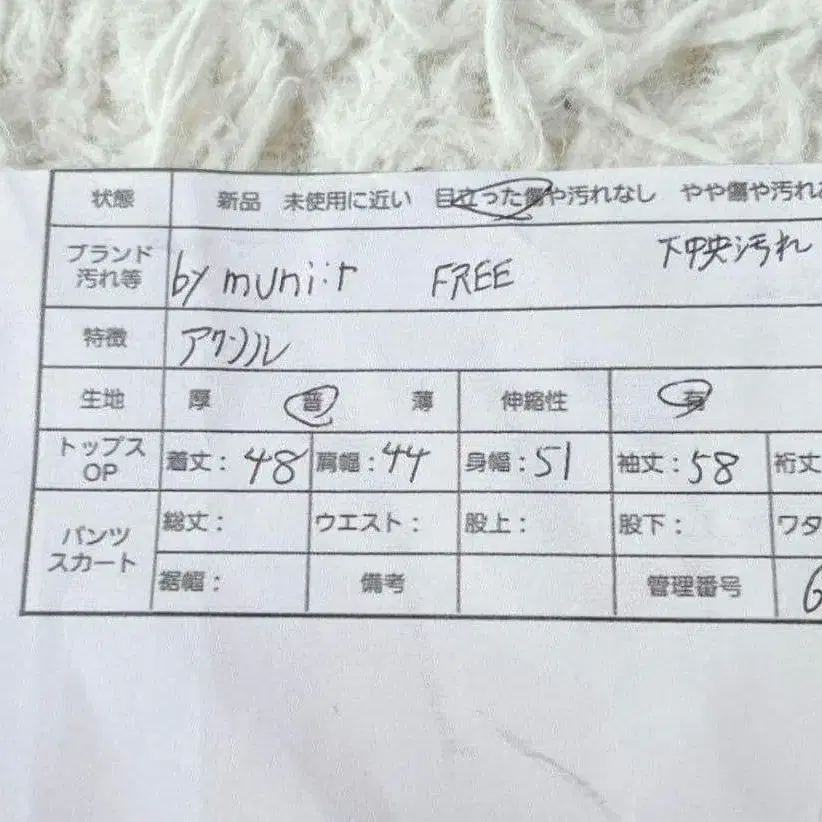 状態 新品 未使用に近い 目立った傷や汚れなし やや傷や汚れ
ブランド 汚れ等 by muni:r FREE 下中央汚れ
特徴 アクリル
生地 厚 普 薄 伸縮性 有
トップス OP 着丈: 48 肩幅: 44 身幅: 51 袖丈: 58 裄丈
パンツ スカート 総丈: ウエスト: 股上: 股下: ワタ
裾幅: 備考 管理番号 6